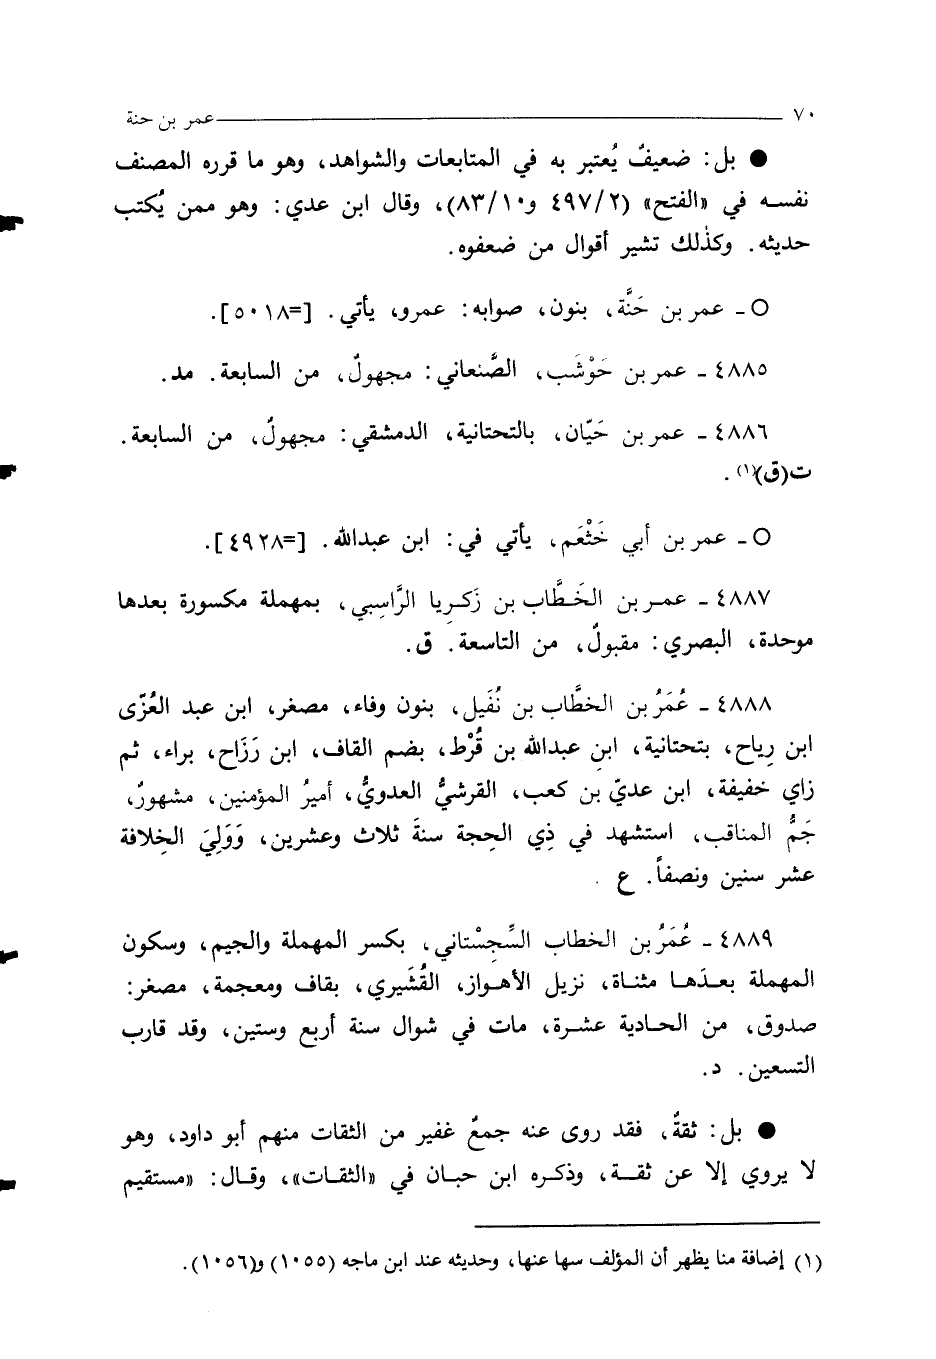 ٧٠ عمر بن حنة
● بل: ضعيفٌ يُعتبر به في المتابعات والشواهد، وهو ما قرره المصنف
نفسه في «الفتح» (٤٩٧/٢ و٨٣/١٠)، وقال ابن عدي: وهو ممن يُكتب
حديثه. وكذٰلك تشير أقوال من ضعفوه.
○ - عمر بن حَنَّة، بنون، صوابه: عمرو، يأتي. [=٥٠١٨].
٤٨٨٥ - عمر بن حَوْشَب، الصَّنعاني: مجهولٌ، من السابعة. مد.
٤٨٨٦ - عمر بن حَيّان، بالتحتانية، الدمشقي: مجهولٌ، من السابعة.
ت(ق)(١).
○ - عمر بن أبي خَثْعَم، يأتي في: ابن عبدالله. [=٤٩٢٨].
٤٨٨٧ - عمر بن الخَطَّاب بن زَكرِيا الرَّاسِبي، بمهملة مكسورة بعدها
موحدة، البصري: مقبولٌ، من التاسعة. ق.
٤٨٨٨ - عُمَرُ بن الخطَّاب بن نُفَيل، بنون وفاء، مصغر، ابن عبد العُزّى
ابن رِياح، بتحتانية، ابن عبدالله بن قُرْط، بضم القاف، ابن رَزَاح، براء، ثم
زاي خفيفة، ابن عديّ بن كعب، القرشيُّ العدويُّ، أميرُ المؤمنين، مشهورٌ،
جَمُّ المناقب، استشهد في ذِي الحِجة سنةَ ثلاث وعشرين، وَوَلِيَ الخِلافة
عشر سنين ونصفاً. ع
٤٨٨٩ - عُمَرُ بن الخطاب السِّجِسْتاني، بكسر المهملة والجيم، وسكون
المهملة بعدَها مثناة، نزيل الأهواز، القُشَيري، بقاف ومعجمة، مصغر:
صدوق، من الحادية عشرة، مات في شوال سنة أربع وستين، وقد قارب
التسعين. د.
● بل: ثقةٌ، فقد روى عنه جمعٌ غفير من الثقات منهم أبو داود، وهو
لا يروي إلا عن ثقة، وذكره ابن حبان في «الثقات»، وقال: «مستقيم
(١) إضافة منا يظهر أن المؤلف سها عنها، وحديثه عند ابن ماجه (١٠٥٥) و(١٠٥٦).